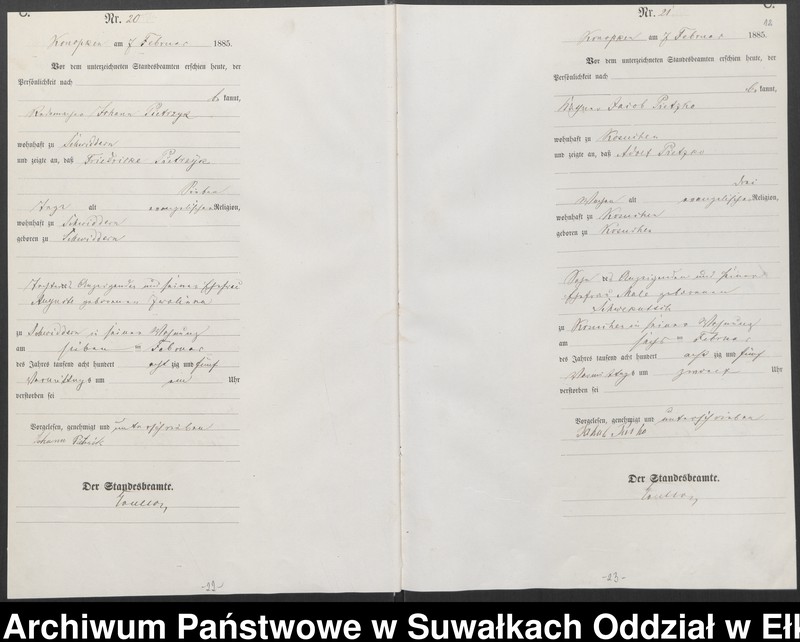 C.
Nr. 20
Konopken am 7 Februar 1885.
Vor dem unterzeichneten Standesbeamten erschien heute, der
Persönlichkeit nach
be kannt,
Johann Pietrzyk
wohnhaft zu Schwiddern
und zeigte an, daß Friedricke Pietrzyk
Sieben
Tage alt evangelischen Religion,
wohnhaft zu Schwiddern
geboren zu Schwiddern
Tochter des Anzeigenden und seiner Ehefrau
Auguste geborenen
zu Schwiddern in seiner Wohnung
am sieben ten Februar
des Jahres tausend acht hundert acht zig und fünf
Vormittags um ein Uhr
verstorben sei
Vorgelesen, genehmigt und unterschrieben
Johann
Der Standesbeamte.
-22-
C.
Nr. 21
Konopken am 7 Februar 1885.
Vor dem unterzeichneten Standesbeamten erschien heute, der
Persönlichkeit nach
be kannt,
Jacob Pietzko
wohnhaft zu
und zeigte an, daß Adolf Pietzko
drei
Wochen alt evangelischen Religion,
wohnhaft zu
geboren zu
Sohn des Anzeigenden und seiner
Ehefrau geborenen
zu in seiner Wohnung
am sechs ten Februar
des Jahres tausend acht hundert acht zig und fünf
Vormittags um Uhr
verstorben sei
Vorgelesen, genehmigt und unterschrieben
Der Standesbeamte.
-23-
Archiwum Państwowe w Suwałkach Oddział w Eł